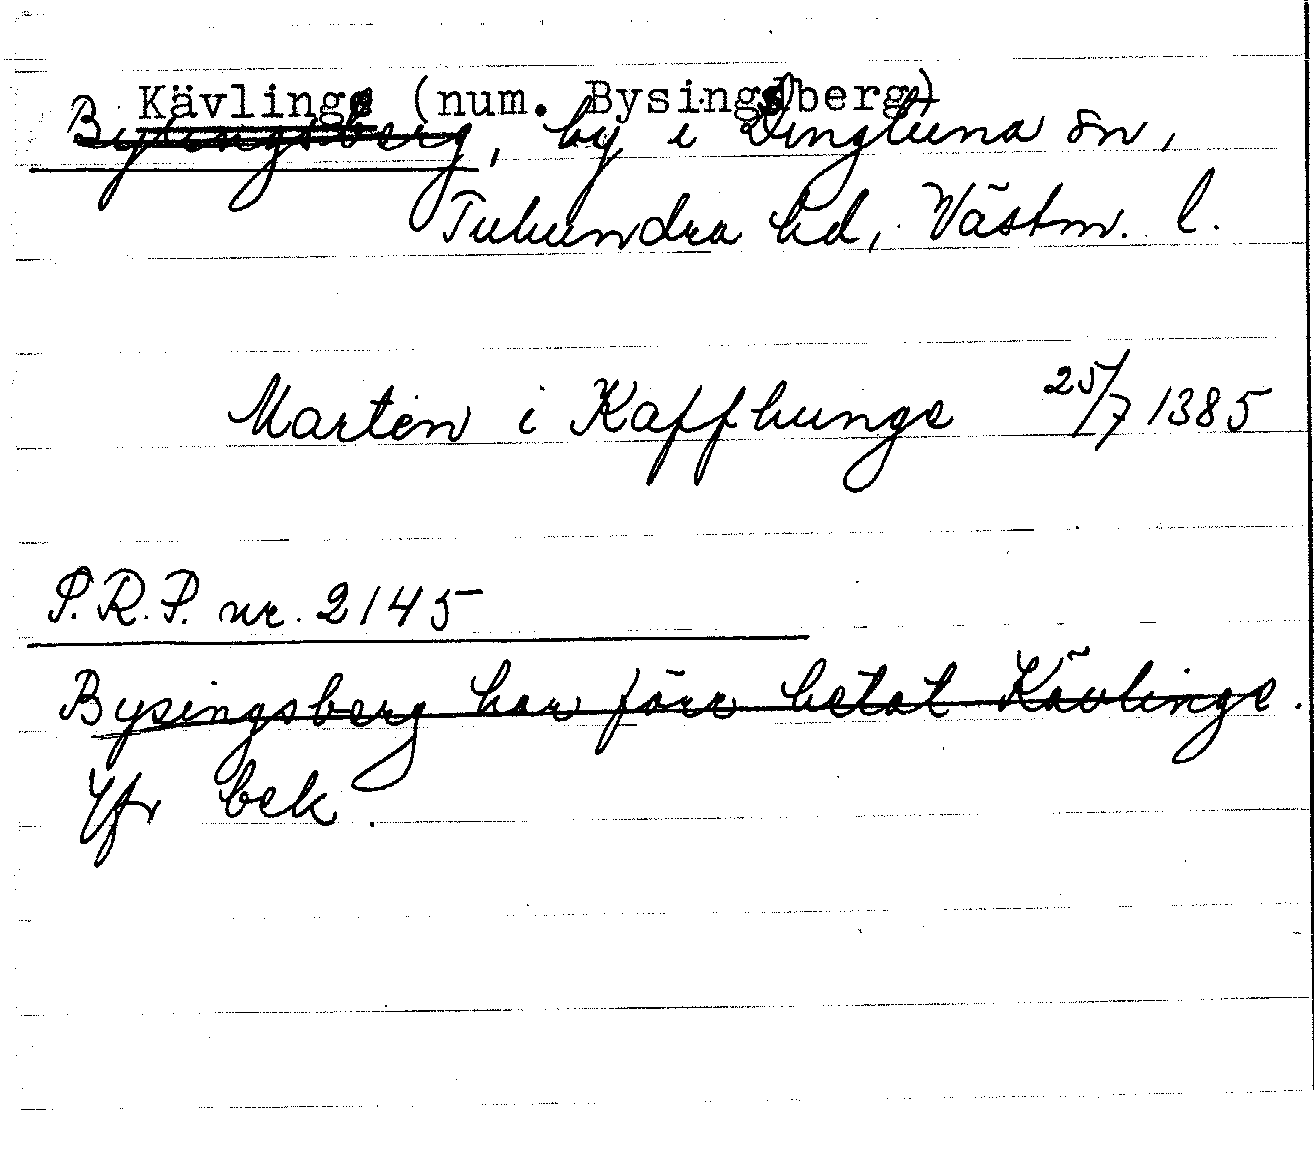 Kävlinge (num. Bysingsberg)
Bysingsberg, by i Dingtuna sn,
Tuhundra hd, Västm. l.
Marten i Kaffhunge 25/7 1385
P.R.P. nr. 2145
Bysingsberg har förr hetat Kävlinge.
Yfr bek.